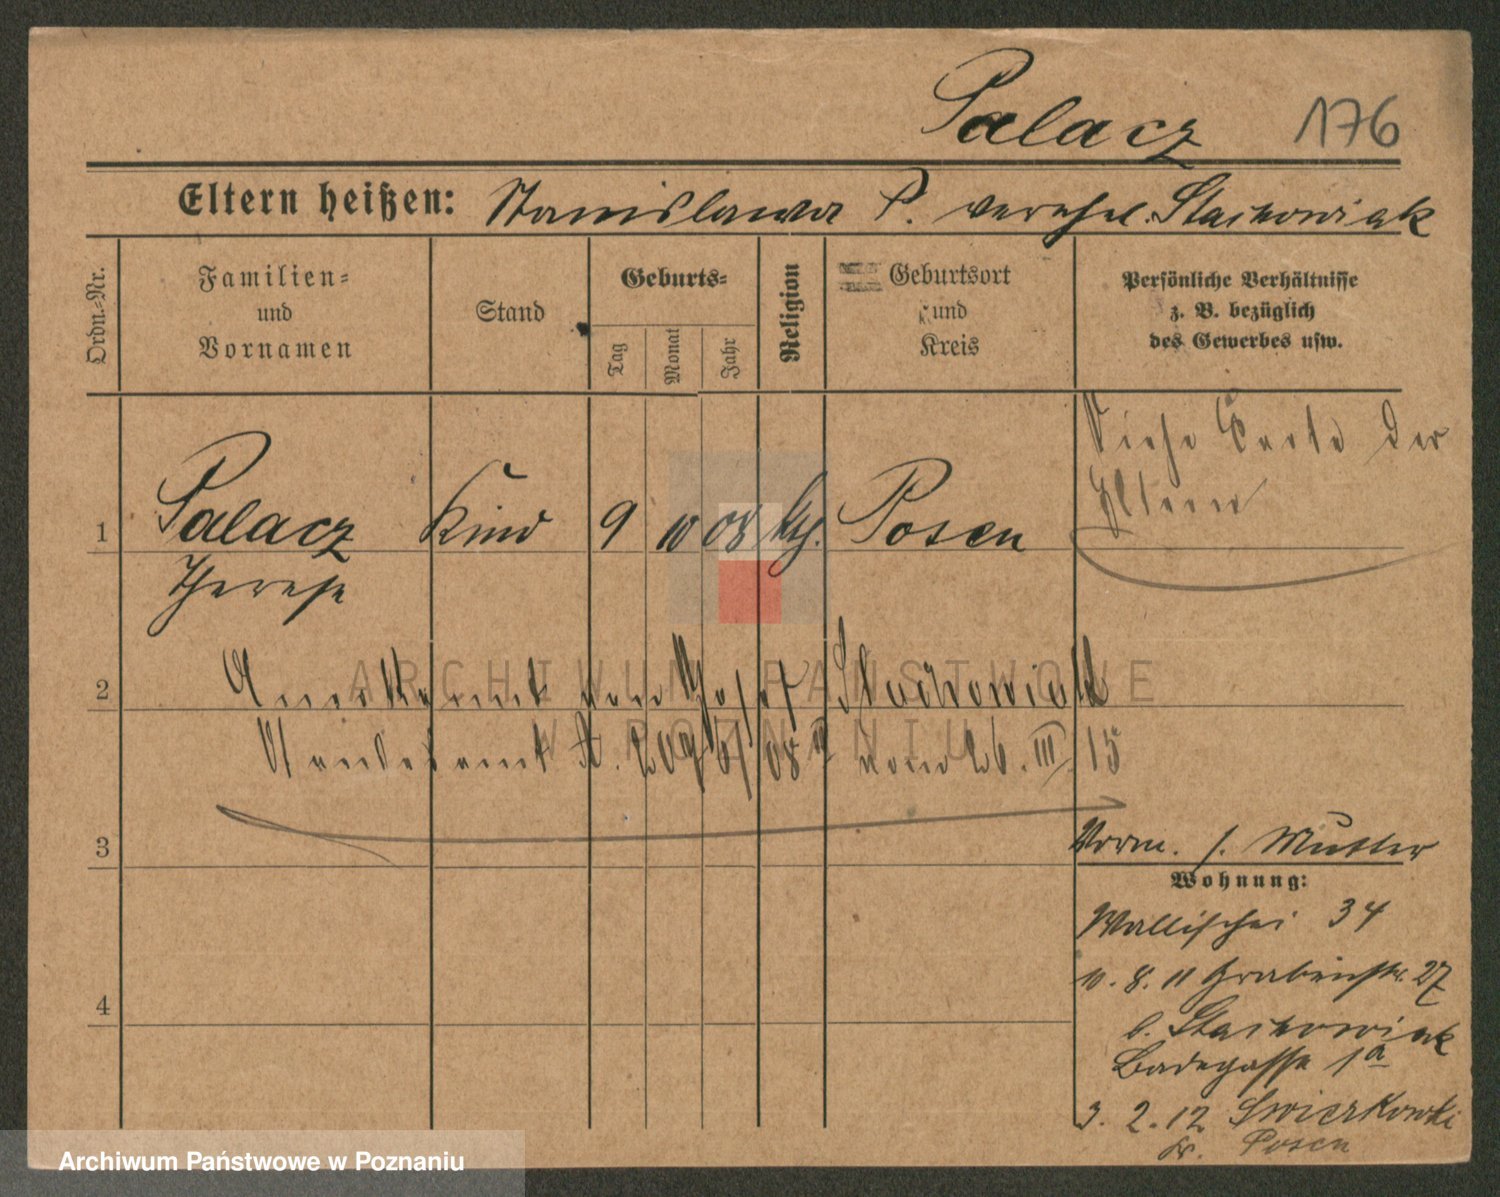 Palacz 176
Eltern heißen: Stanislawa P. verehel. Stachowiak
Ordn.-Nr.
Familien-
und
Vornamen
Stand
Geburts-
Tag
Monat
Jahr
Religion
Geburtsort
und
Kreis
Persönliche Verhältnisse
z. B. bezüglich
des Gewerbes usw.
Siehe Carte der
Eltern
1 Palacz Kind 9 10 08 kth. Posen
Therese
2 Anerkannt von Josef Stachowiak
Standesamt A. vom 26. III. 15
3
Vorm. s. Mutter
Wohnung:
Wallischei 34
10. 8. 11 Grabenstr. 27
b. Stachowiak
Badegasse 1a
4
3. 2. 12 Swierkowki
Kr. Posen
ARCHIWUM PAŃSTWOWE
W POZNANIU
Archiwum Państwowe w Poznaniu